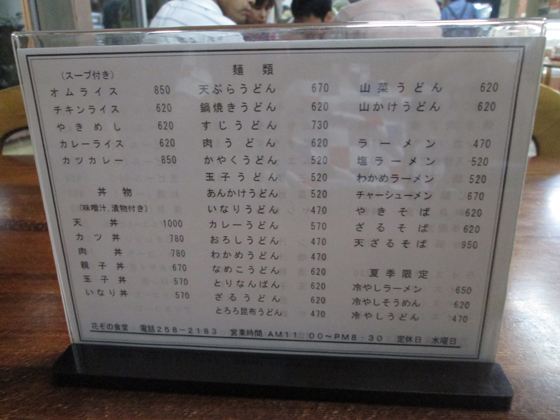 (スープ付き)
オムライス 850
チキンライス 620
やきめし 620
カレーライス 620
カツカレー 850
丼物
(味噌汁、漬物付き)
天丼 1000
カツ丼 780
肉丼 780
親子丼 670
玉子丼 570
いなり丼 570
麺類
天ぷらうどん 670
鍋焼きうどん 620
すじうどん 730
肉うどん 620
かやくうどん 520
玉子うどん 520
あんかけうどん 520
いなりうどん 470
カレーうどん 570
おろしうどん 470
わかめうどん 470
なめこうどん 620
とりなんばん 620
ざるうどん 620
とろろ昆布うどん 470
山菜うどん 620
山かけうどん 620
ラーメン 470
塩ラーメン 520
わかめラーメン 520
チャーシューメン 670
やきそば 620
ざるそば 620
天ざるそば 950
夏季限定
冷やしラーメン 650
冷やしそうめん 620
冷やしうどん 470
花ぞの食堂 電話258-2183 営業時間 AM11:00~PM8:30 定休日 水曜日